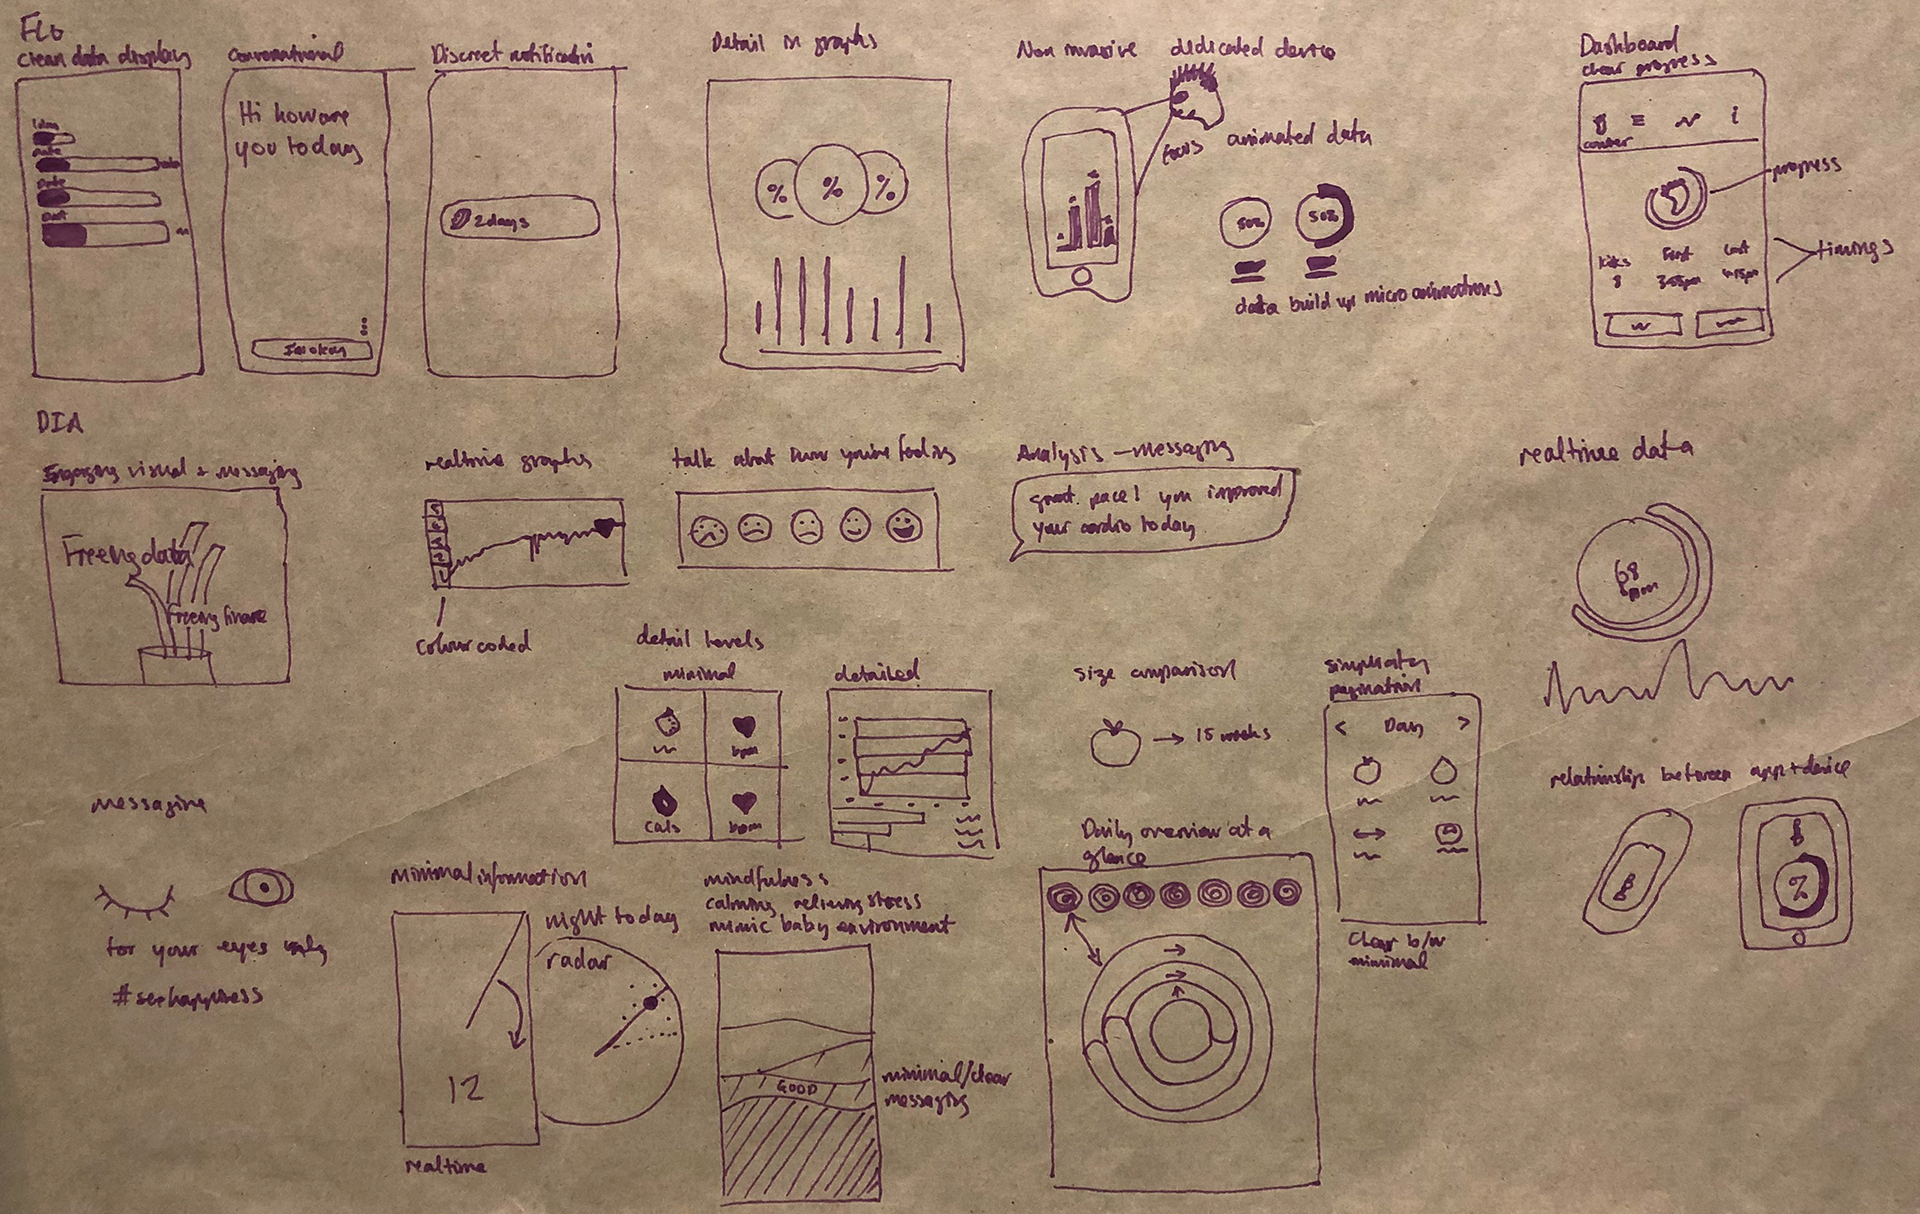 FLO
Clean data displays
Conversational
Discreet notification
Detail in graphs
Non invasive dedicated device
Dashboard
clear progress
Hi how are
you today
I'm okay
2 days
%
%
%
focus
animated data
50%
50%
data build up micro animations
counter
progress
Kicks
First
Last
8
timings
DIA
Engaging visual + messaging
realtime graphs
talk about how you're feeling
Analysis - messaging
realtime data
Freeing data
Freeing finance
5
4
3
2
1
colour coded
great pace! you improved
your cardio today
68
detail levels
minimal
detailed
bpm
cals
bpm
size comparison
→ 15 weeks
simplicity
pagination
< Day >
clear b/w
minimal
relationship between app + device
%
messaging
for your eyes only
#seehappiness
minimal information
night to day
radar
12
realtime
mindfulness
calming relieving stress
mimic baby environment
GOOD
minimal/clear
messaging
Daily overview at a
glance